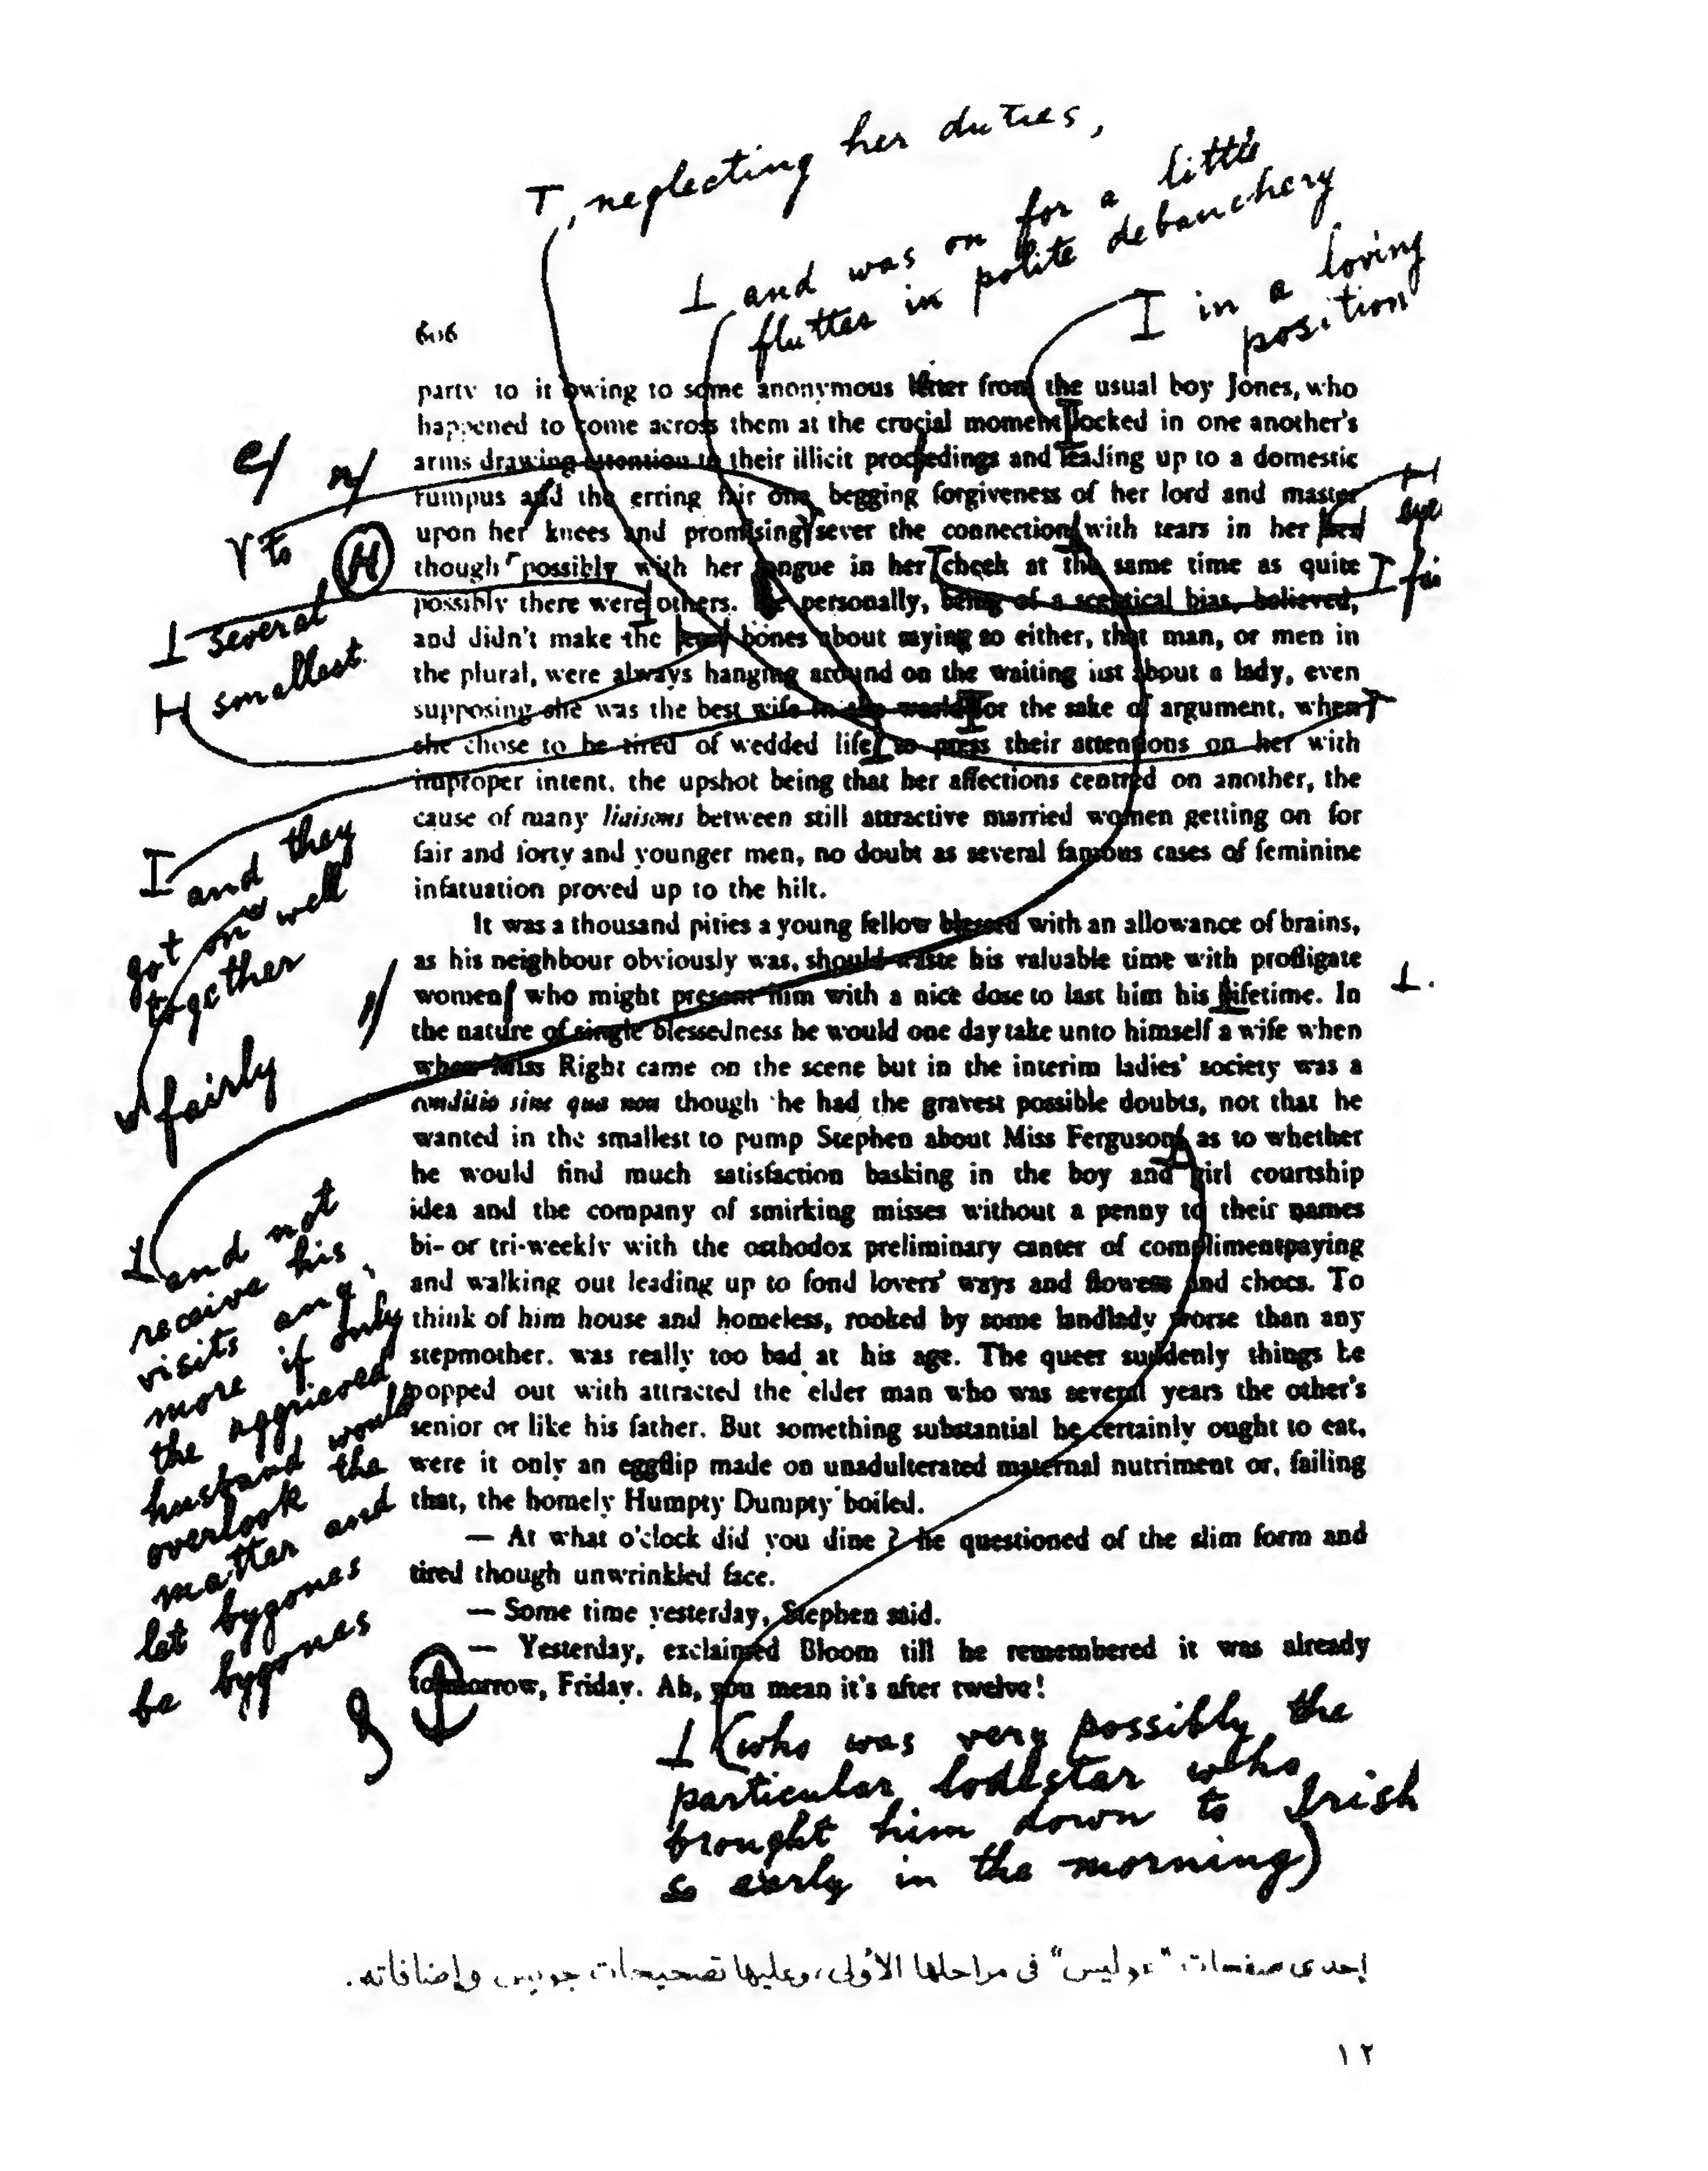 T, neglecting her duties,
I and was on for a little
flutter in polite debauchery
I in a loving
position
606
party to it owing to some anonymous letter from the usual boy Jones, who
happened to come across them at the crucial moment locked in one another's
arms drawing attention to their illicit proceedings and leading up to a domestic
rumpus and the erring fair one begging forgiveness of her lord and master
upon her knees and promising sever the connection with tears in her
though possibly with her tongue in her cheek at the same time as quite
possibly there were others. He personally, being of a sceptical bias, believed,
and didn't make the least bones about saying so either, that man, or men in
the plural, were always hanging around on the waiting list about a lady, even
supposing she was the best wife in the world for the sake of argument, when
she chose to be tired of wedded life, to press their attentions on her with
improper intent, the upshot being that her affections centred on another, the
cause of many liaisons between still attractive married women getting on for
fair and forty and younger men, no doubt as several famous cases of feminine
infatuation proved up to the hilt.
It was a thousand pities a young fellow blessed with an allowance of brains,
as his neighbour obviously was, should waste his valuable time with profligate
women who might present him with a nice dose to last him his lifetime. In
the nature of single blessedness he would one day take unto himself a wife when
when Miss Right came on the scene but in the interim ladies' society was a
conditio sine qua non though he had the gravest possible doubts, not that he
wanted in the smallest to pump Stephen about Miss Ferguson, as to whether
he would find much satisfaction basking in the boy and girl courtship
idea and the company of smirking misses without a penny to their names
bi- or tri-weekly with the orthodox preliminary canter of complimentpaying
and walking out leading up to fond lovers' ways and flowers and chocs. To
think of him house and homeless, rooked by some landlady worse than any
stepmother, was really too bad at his age. The queer suddenly things he
popped out with attracted the elder man who was several years the other's
senior or like his father. But something substantial he certainly ought to eat,
were it only an eggflip made on unadulterated maternal nutriment or, failing
that, the homely Humpty Dumpty boiled.
— At what o'clock did you dine ? he questioned of the slim form and
tired though unwrinkled face.
— Some time yesterday, Stephen said.
— Yesterday, exclaimed Bloom till he remembered it was already
tomorrow, Friday. Ah, you mean it's after twelve!
e/ n/
to
H
I several
H smallest.
I and they
got on well
together
fairly
I and not
receive his
visits any
more if only
the aggrieved
husband would
overlook the
matter and
let bygones
be bygones
H
eye
I fai
I (who was very possibly the
particular lodestar who
brought him down to Irish
so early in the morning)
إحدى صفحات "عوليس" فى مراحلها الأولى، وعليها تصحيحات جويس وإضافاته.
١٢